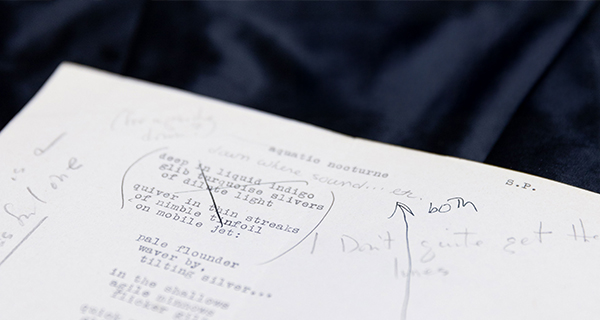 aquatic nocturne
S.P.
down where sound... etc.
deep in liquid indigo
glib turquoise slivers
of dilute light
both
quiver in thin streaks
of nimble tinfoil
on mobile jet:
I Don't quite get the
lines
pale flounder
waver by,
tilting silver...
in the shallows
agile minnows
flicker gilt